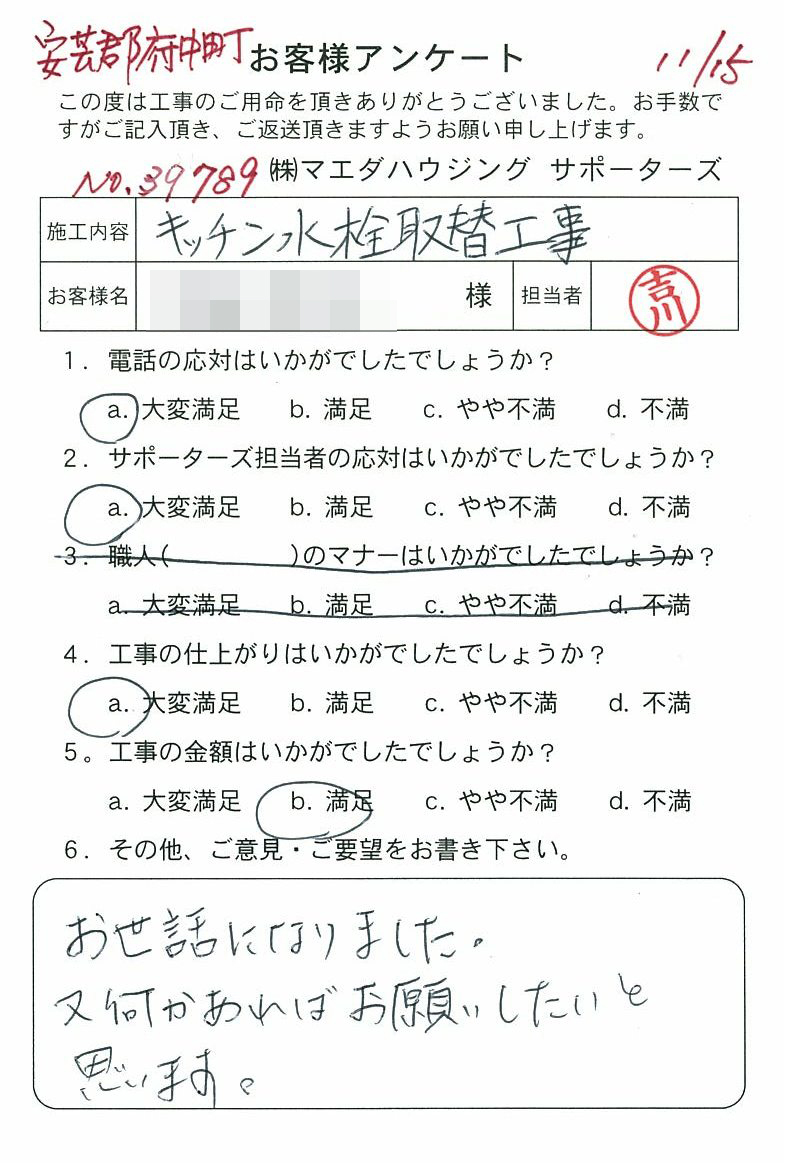 安芸郡府中町 お客様アンケート 11/15
この度は工事のご用命を頂きありがとうございました。お手数で
すがご記入頂き、ご返送頂きますようお願い申し上げます。
No.39789 ㈱マエダハウジング サポーターズ
施工内容 キッチン水栓取替工事
お客様名 様 担当者 吉川
1. 電話の応対はいかがでしたでしょうか？
a. 大変満足 b. 満足 c. やや不満 d. 不満
2. サポーターズ担当者の応対はいかがでしたでしょうか？
a. 大変満足 b. 満足 c. やや不満 d. 不満
3. 職人( )のマナーはいかがでしたでしょうか？
a. 大変満足 b. 満足 c. やや不満 d. 不満
4. 工事の仕上がりはいかがでしたでしょうか？
a. 大変満足 b. 満足 c. やや不満 d. 不満
5。工事の金額はいかがでしたでしょうか？
a. 大変満足 b. 満足 c. やや不満 d. 不満
6. その他、ご意見・ご要望をお書き下さい。
お世話になりました。
又何かあればお願いしたいと
思います。